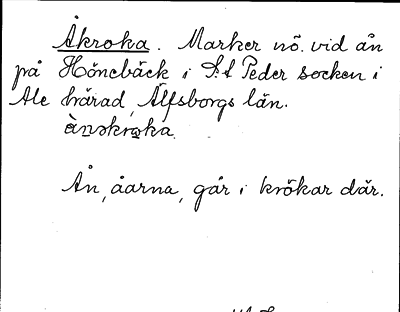 Åkroka. Marker nö. vid ån
på Hönebäck i S:t Peder socken i
Ale härad, Älfsborgs län.
ànskroka.
Ån, åarna, går i krökar där.